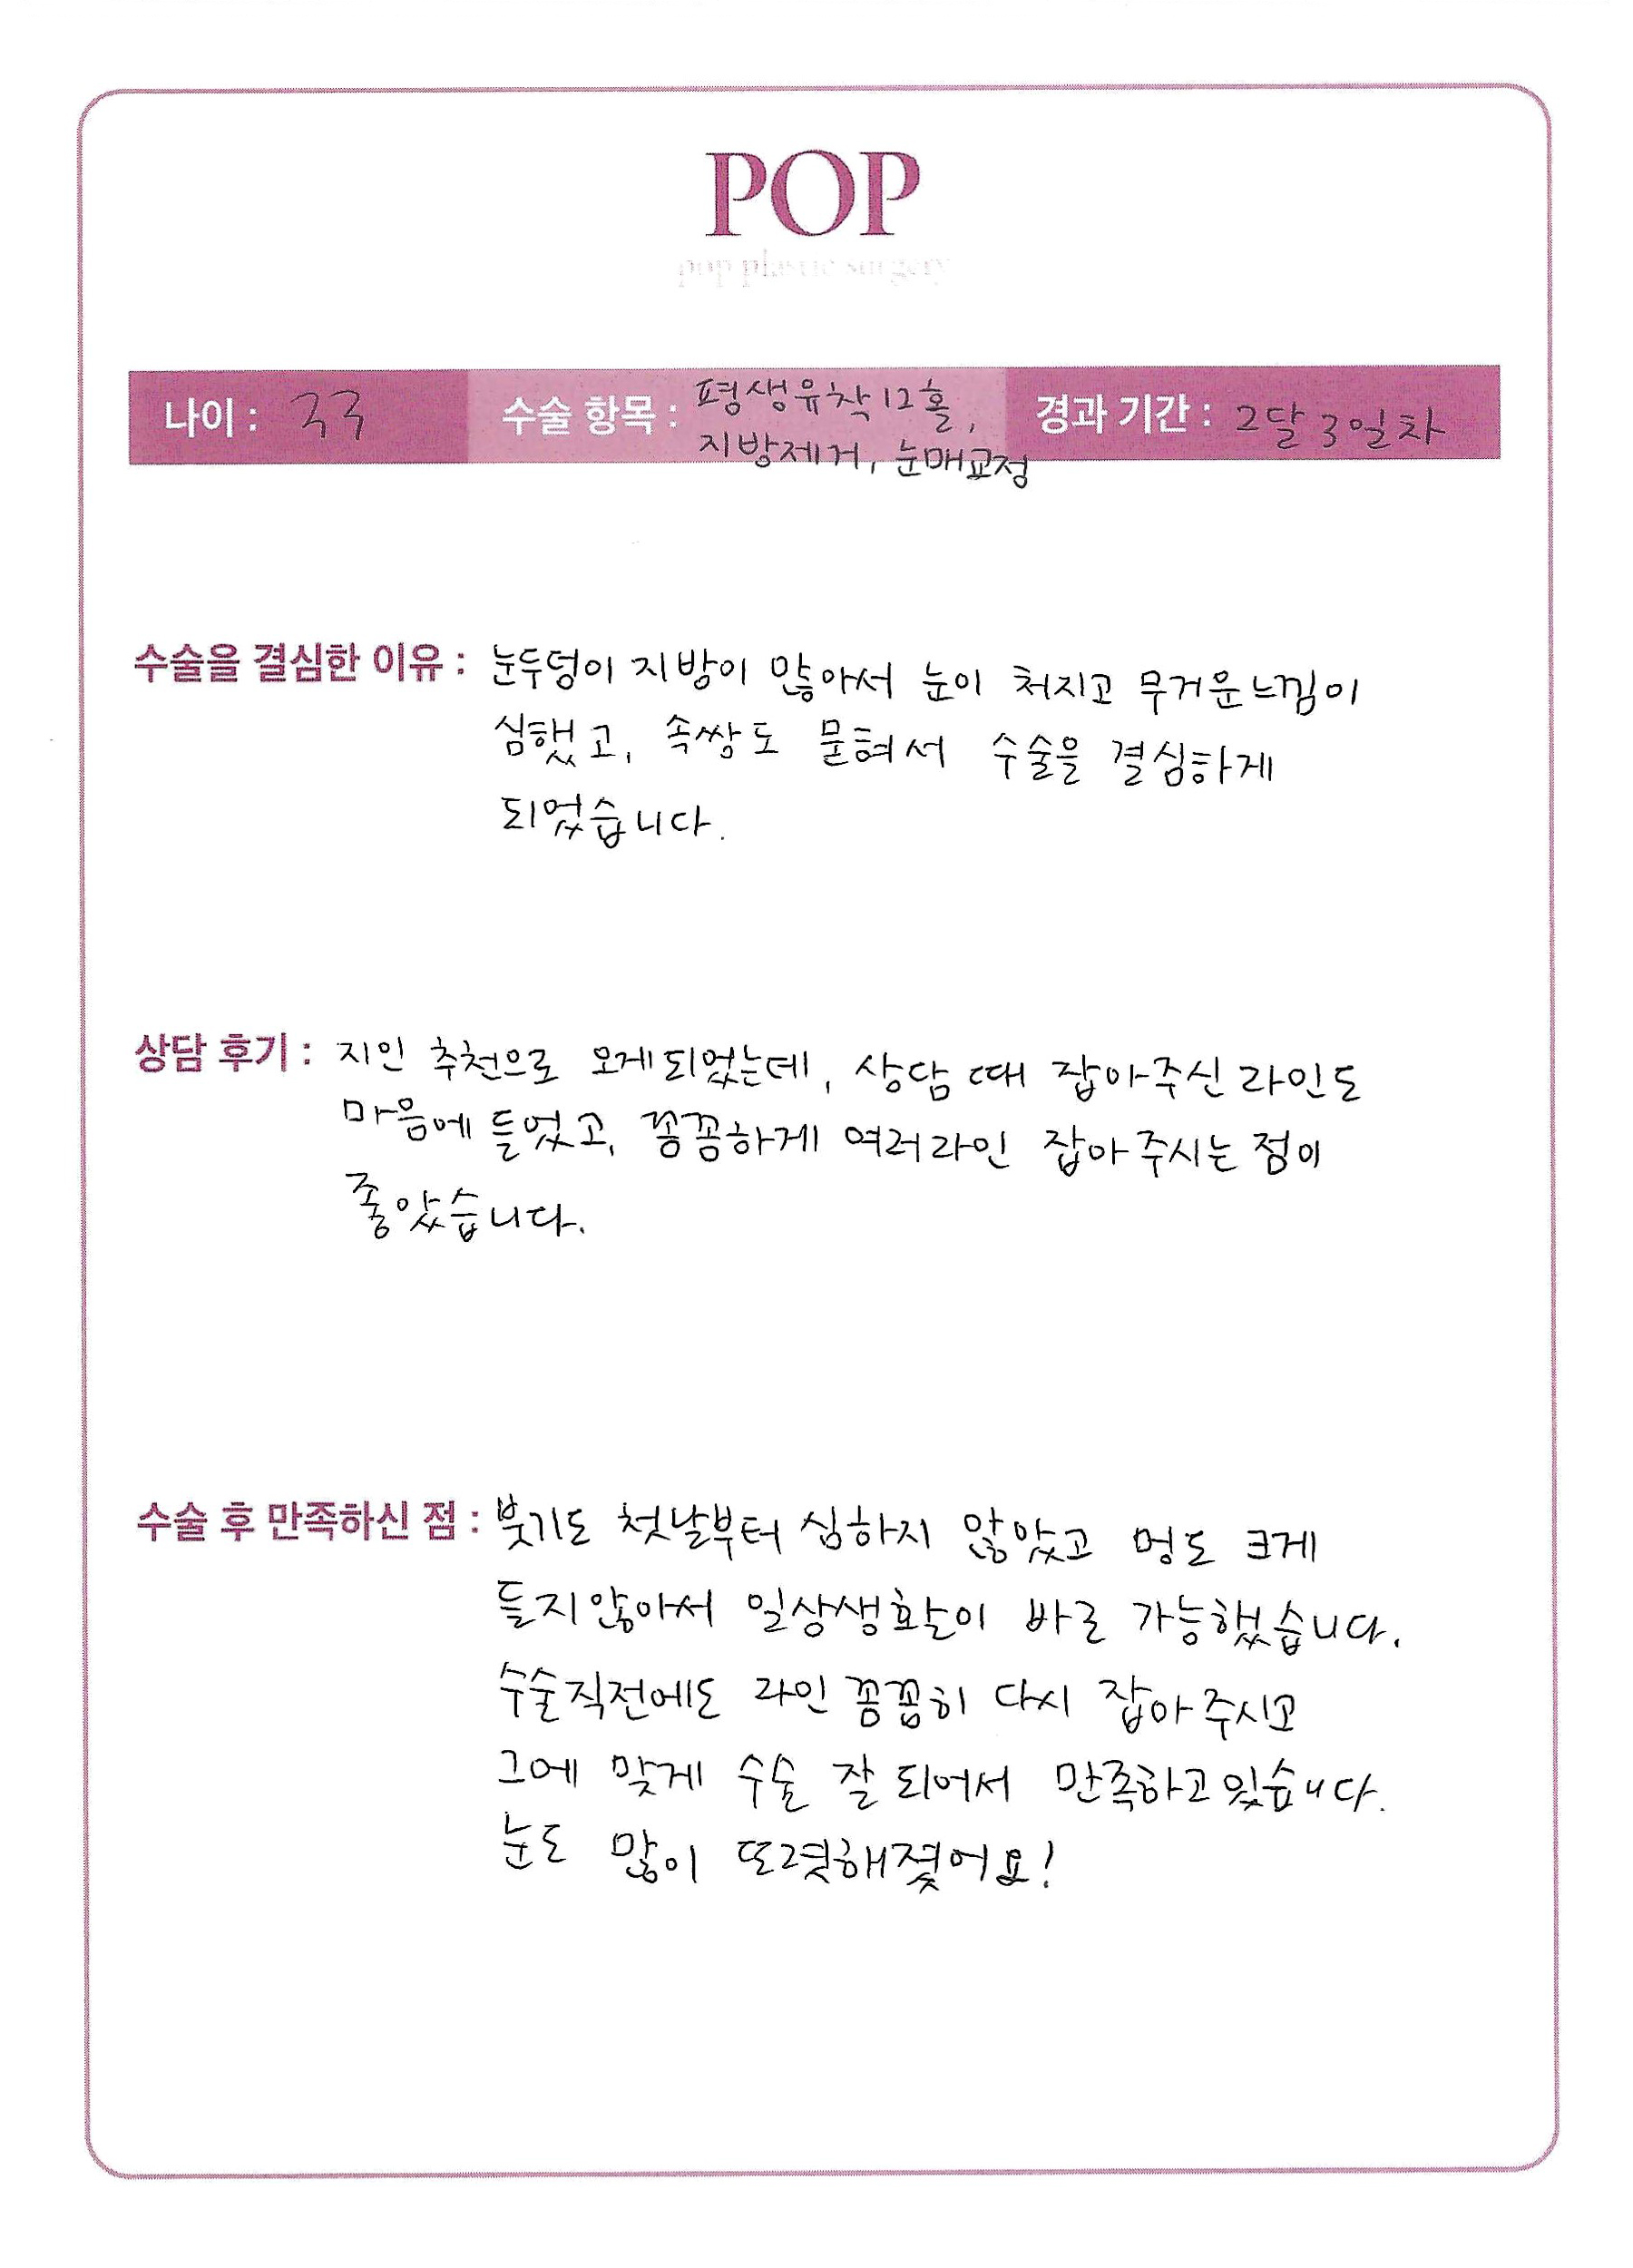 POP
pop plastic surgery
나이 : 33 수술 항목 : 평생유착12홀, 경과 기간 : 2달 3일차
지방제거, 눈매교정
수술을 결심한 이유 : 눈두덩이 지방이 많아서 눈이 처지고 무거운느낌이
심했고, 속쌍도 묻혀서 수술을 결심하게
되었습니다.
상담 후기 : 지인 추천으로 오게되었는데, 상담 때 잡아주신 라인도
마음에 들었고, 꼼꼼하게 여러라인 잡아주시는 점이
좋았습니다.
수술 후 만족하신 점 : 붓기도 첫날부터 심하지 않았고 멍도 크게
들지않아서 일상생활이 바로 가능했습니다.
수술직전에도 라인 꼼꼼히 다시 잡아주시고
그에 맞게 수술 잘 되어서 만족하고있습니다.
눈도 많이 또렷해졌어요!